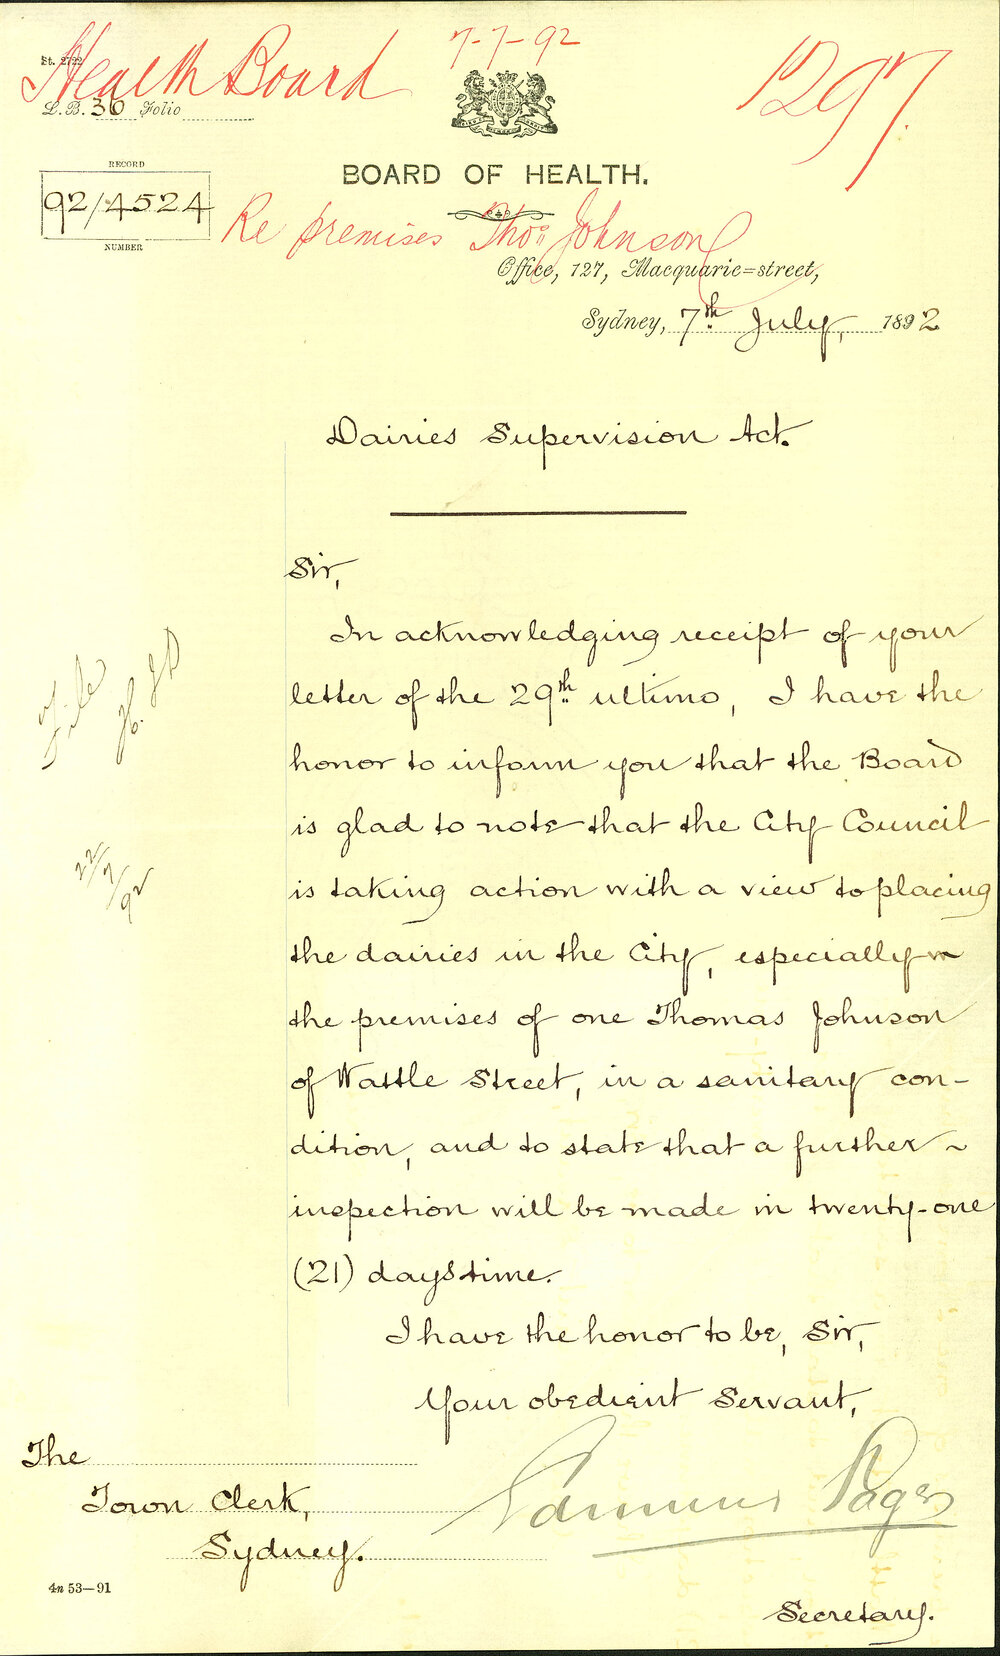 St. 2722
Health Board
7-7-92
1297.
L.B. 36 Folio
RECORD
92/4524
NUMBER
BOARD OF HEALTH.
Re premises Thos. Johnson
Office, 127, Macquarie=street,
Sydney, 7th July, 1892
Dairies Supervision Act.
Sir,
In acknowledging receipt of your
letter of the 29th ultimo, I have the
honor to inform you that the Board
is glad to note that the City Council
is taking action with a view to placing
the dairies in the City, especially in
the premises of one Thomas Johnson
of Wattle Street, in a sanitary con-
dition, and to state that a further ~
inspection will be made in twenty-one
(21) days time.
I have the honor to be, Sir,
Your obedient Servant,
File
22/7/92
The
Town Clerk,
Sydney.
Edmund Sager
Secretary.
4n 53—91